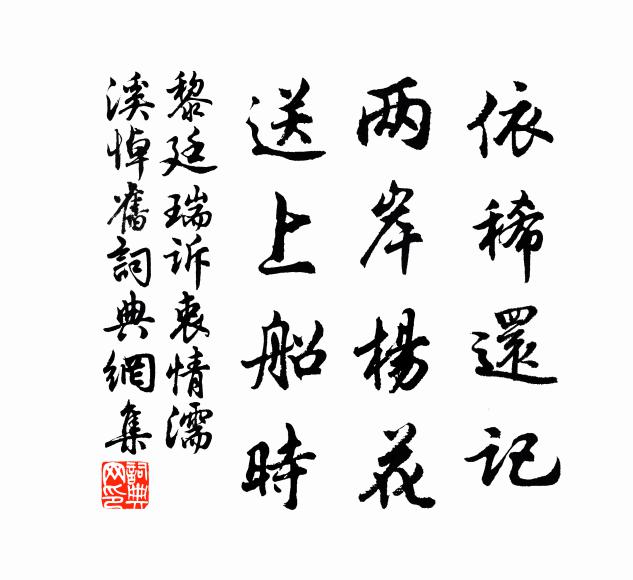 依稀還記
两岸楊花
送上船時
黎廷瑞诉衷情濡
溪悼舊詞典網集
詞典網印